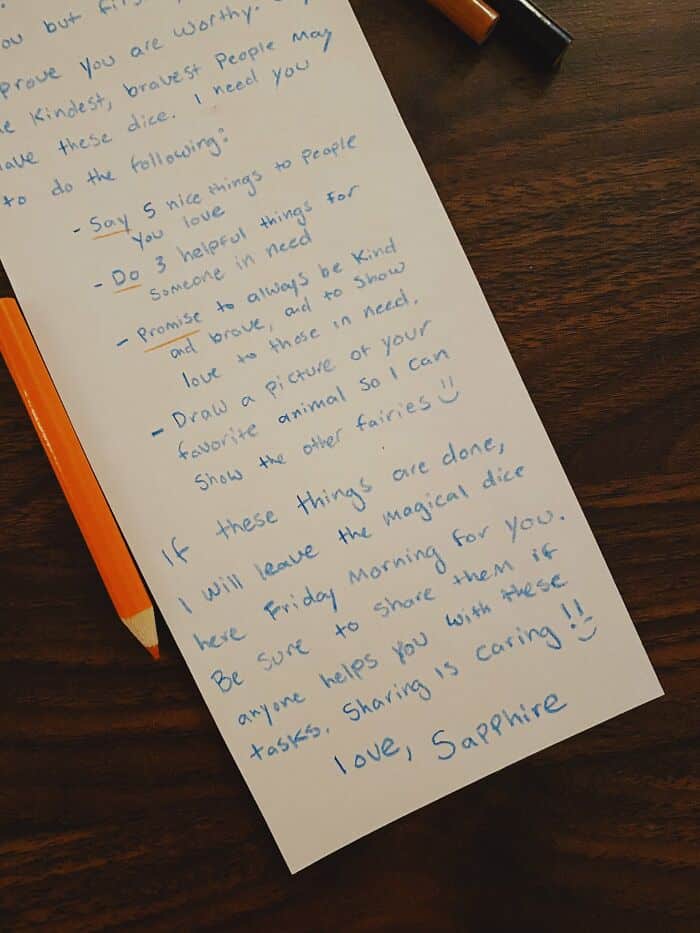 you but
prove you are worthy.
Kindest, bravest People may
these dice. I need you
to do the following:
- Say 5 nice things to people
you love
- Do 3 helpful things for
someone in need
- Promise to always be kind
and brave, and to show
love to those in need.
- Draw a picture of your
favorite animal so I can
show the other fairies
If these things are done,
I will leave the magical dice
here Friday Morning for you.
Be sure to share them if
anyone helps you with these
tasks. Sharing is caring!!
love, Sapphire